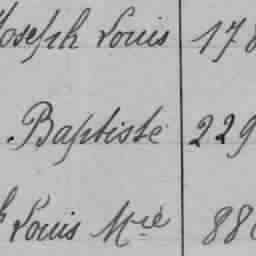 Joseph Louis 178
Baptiste 229
Louis Mie 88